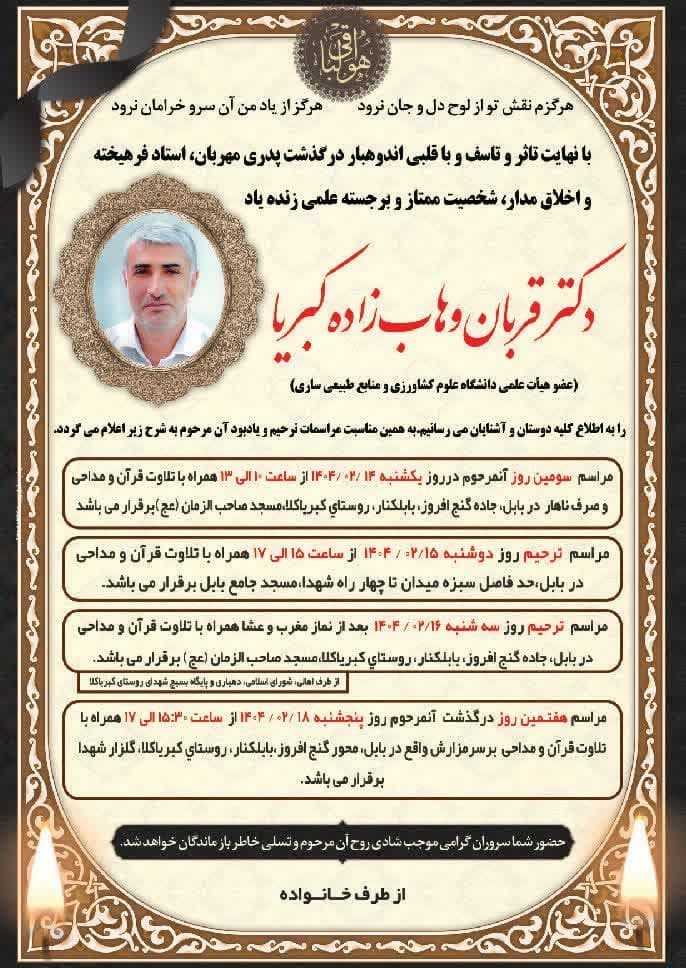 هو الباقی
هرگزم نقش تو از لوح دل و جان نرود هرگز از یاد من آن سرو خرامان نرود
با نهایت تاثر و تاسف و با قلبی اندوهبار درگذشت پدری مهربان، استاد فرهیخته
و اخلاق مدار، شخصیت ممتاز و برجسته علمی زنده یاد
دکتر قربان وهاب زاده کبریا
(عضو هیأت علمی دانشگاه علوم کشاورزی و منابع طبیعی ساری)
را به اطلاع کلیه دوستان و آشنایان می رسانیم.به همین مناسبت مراسمات ترحیم و یادبود آن مرحوم به شرح زیر اعلام می گردد.
مراسم سومین روز آنمرحوم درروز یکشنبه ۱۴۰۴/۰۲/۱۴ از ساعت ۱۰ الی ۱۳ همراه با تلاوت قرآن و مداحی
و صرف ناهار در بابل، جاده گنج افروز، بابلکنار، روستاي کبریاکلا،مسجد صاحب الزمان (عج)برقرار می باشد
مراسم ترحیم روز دوشنبه ۱۴۰۴/۰۲/۱۵ از ساعت ۱۵ الی ۱۷ همراه با تلاوت قرآن و مداحی
در بابل،حد فاصل سبزه میدان تا چهار راه شهدا،مسجد جامع بابل برقرار می باشد.
مراسم ترحیم روز سه شنبه ۱۴۰۴/۰۲/۱۶ بعد از نماز مغرب و عشا همراه با تلاوت قرآن و مداحی
در بابل، جاده گنج افروز، بابلکنار، روستاي کبریاکلا،مسجد صاحب الزمان (عج) برقرار می باشد.
از طرف اهالی، شورای اسلامی، دهیاری و پایگاه بسیج شهدای روستای کبریاکلا
مراسم هفتمین روز درگذشت آنمرحوم روز پنجشنبه ۱۴۰۴/۰۲/۱۸ از ساعت ۱۵:۳۰ الی ۱۷ همراه با
تلاوت قرآن و مداحی برسرمزارش واقع در بابل، محور گنج افروز،بابلکنار، روستاي کبریاکلا، گلزار شهدا
برقرار می باشد.
حضور شما سروران گرامی موجب شادی روح آن مرحوم و تسلی خاطر بازماندگان خواهد شد.
از طرف خانواده